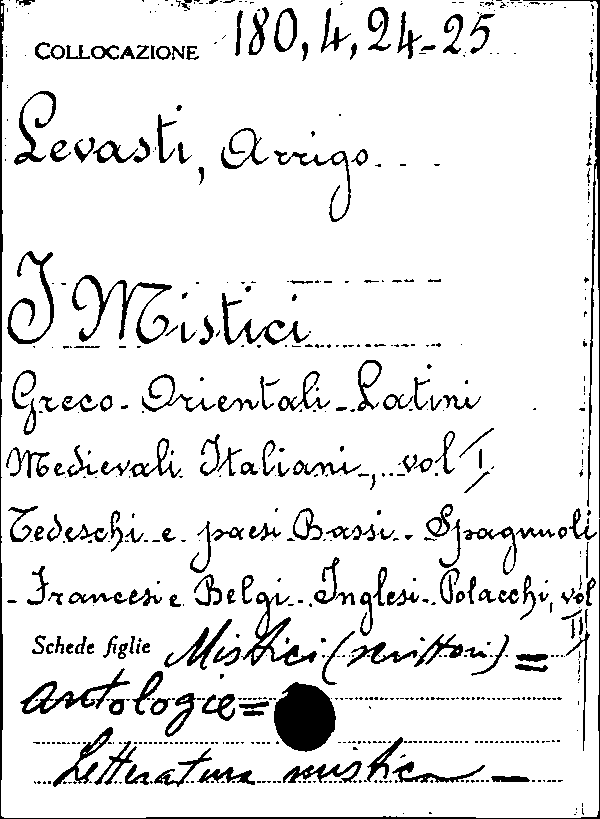 COLLOCAZIONE 180,4,24-25
Levasti, Arrigo
I Mistici
Greco-Orientali-Latini
Medievali Italiani, vol I
Tedeschi e paesi Bassi-Spagnuoli
-Francesi e Belgi-Inglesi-Polacchi, vol
II
Schede figlie Mistici (scrittori) =
antologie =
Letteratura mistica -